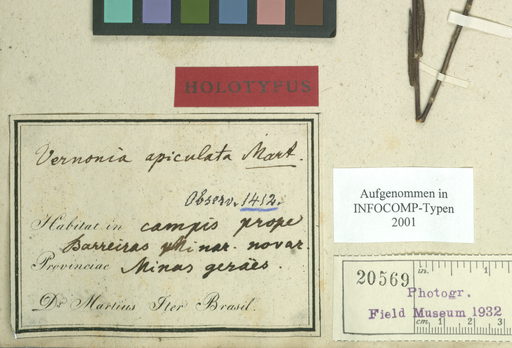 HOLOTYPUS
Vernonia apiculata Mart.
Observ. 1412.
Habitat in campis prope
Barreiras
novar.
Provinciae Minas geräes.
Dr Martius Iter Brasil.
Aufgenommen in
INFOCOMP-Typen
2001
20569
in. 1
Photogr.
Field Museum 1932
cm 1 2 3